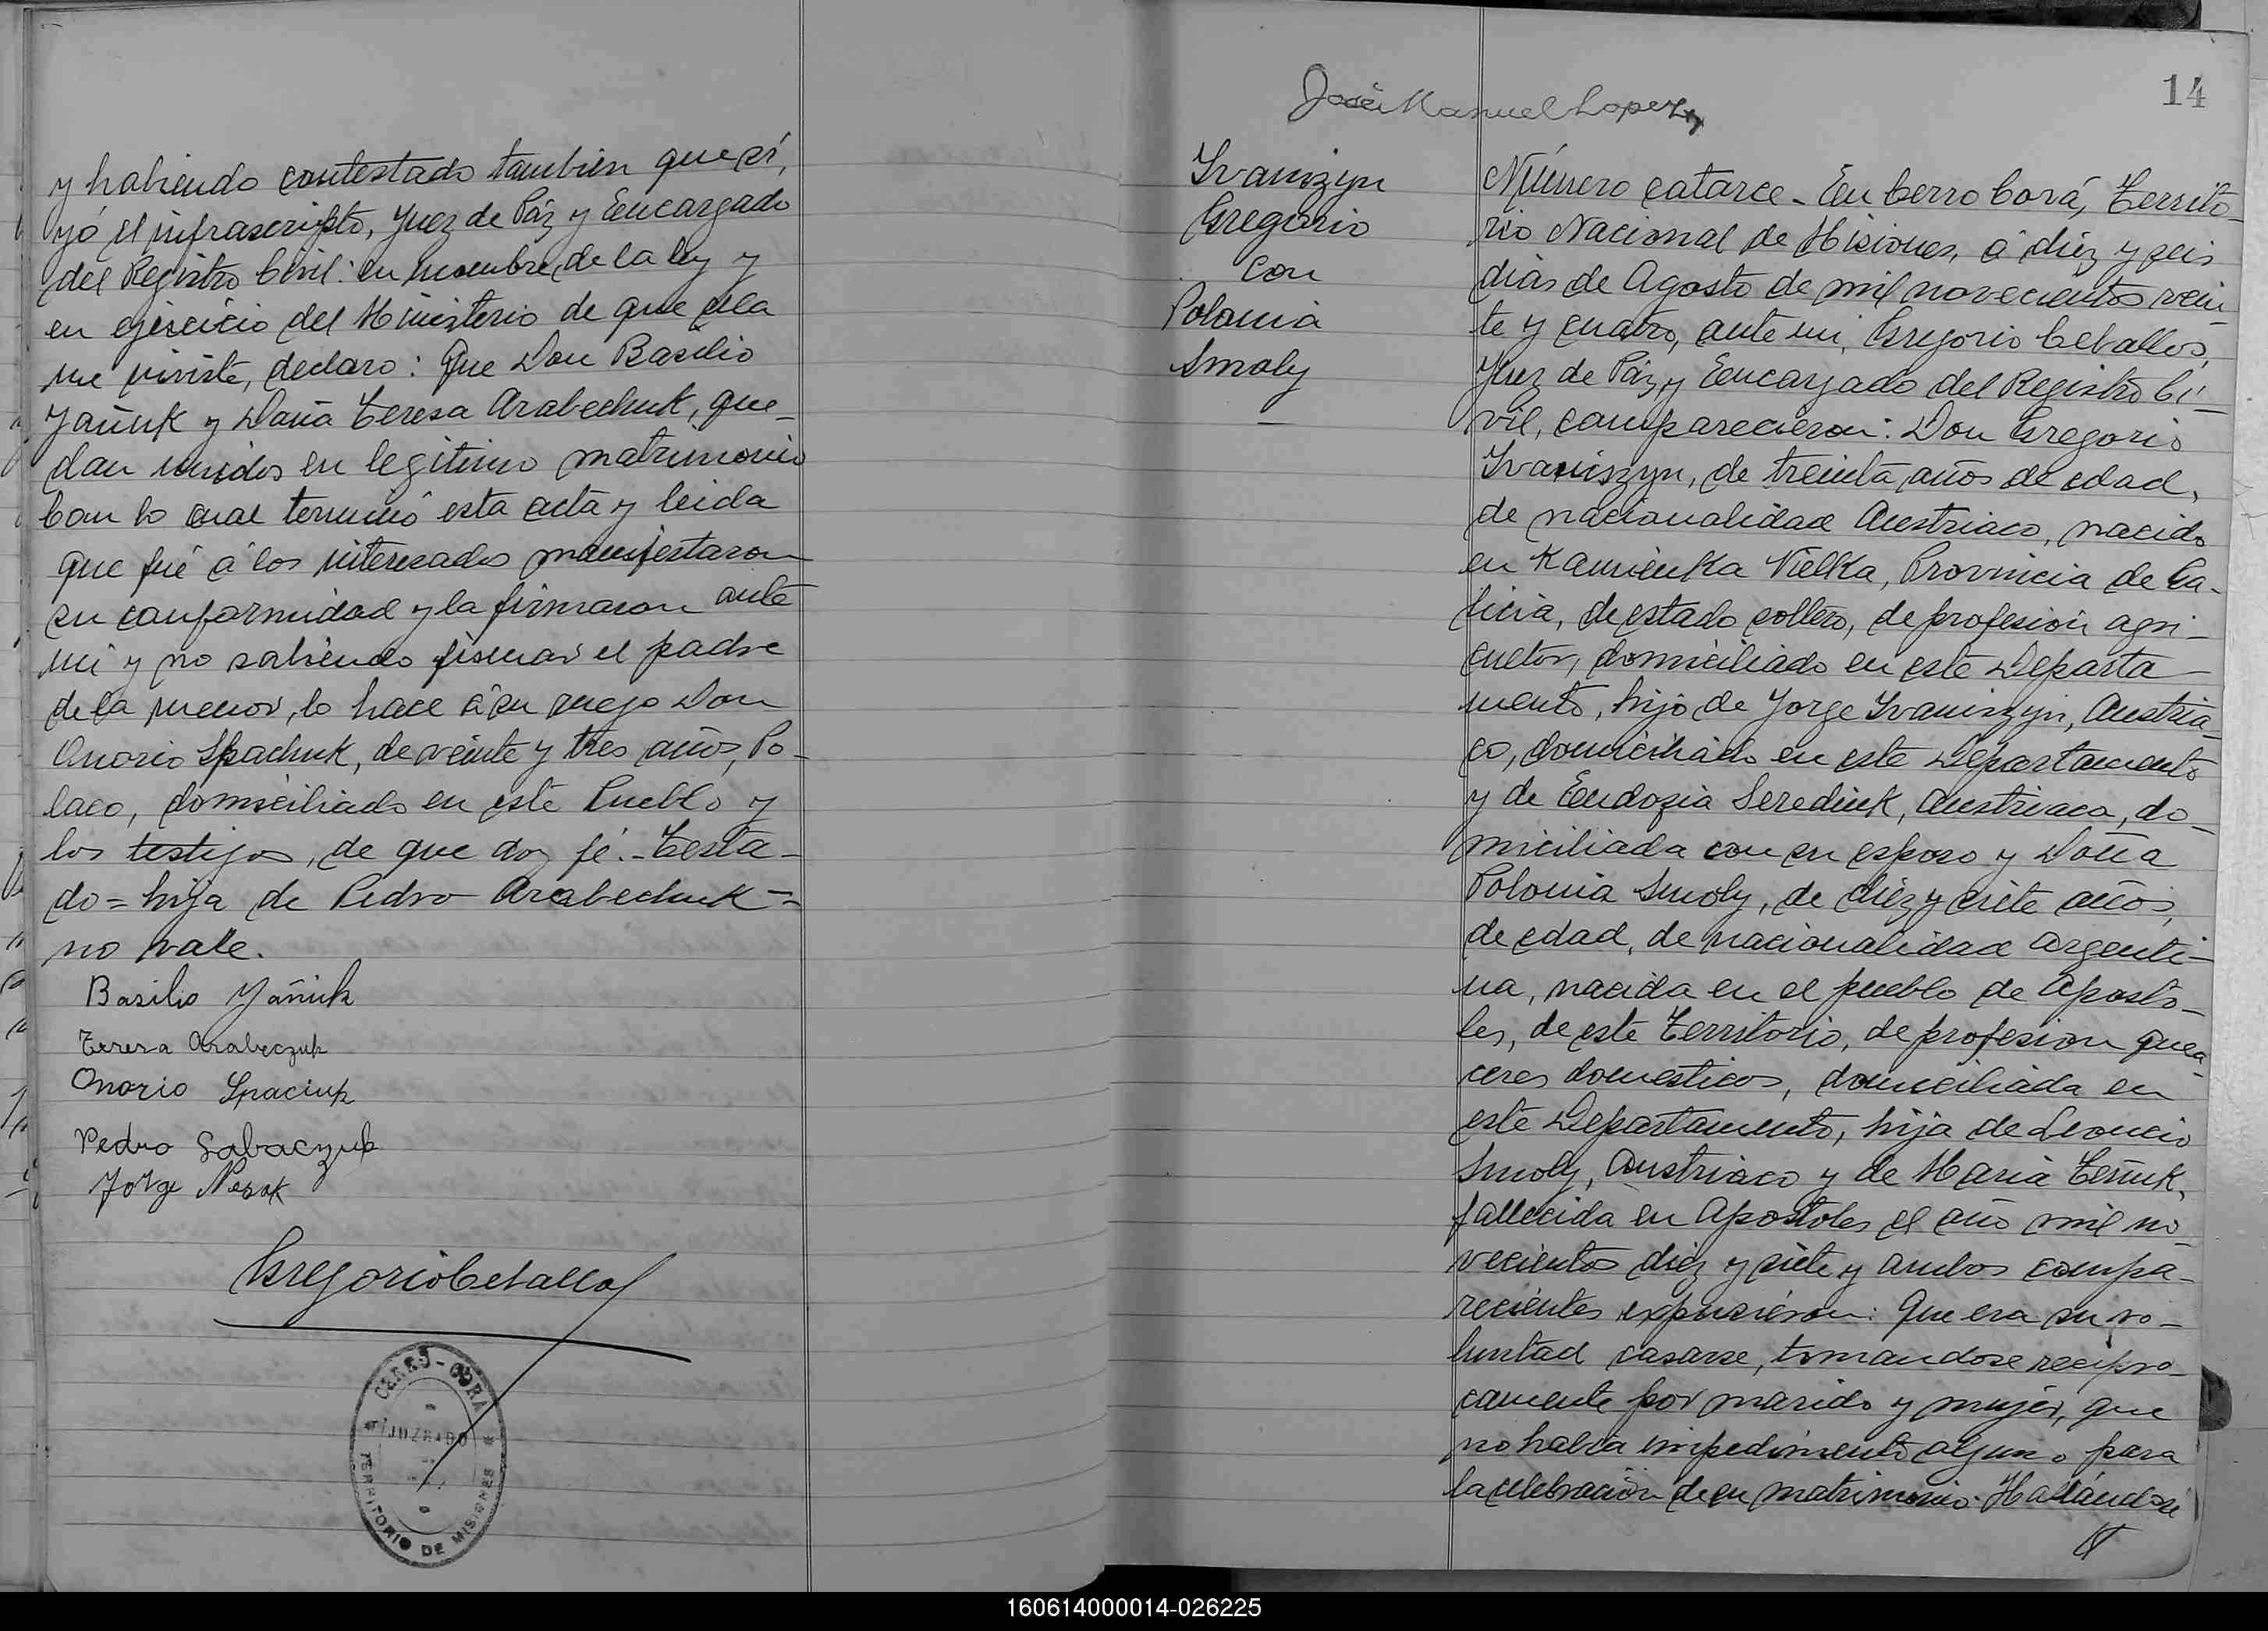 y habiendo contestado tambien que sí,
yó el infrascripto, Juez de Páz y Encargado
del Registro Civil: en nombre de la ley y
en ejercicio del Ministerio de que ella
me inviste, declaro: Que Don Basilio
Yañuk y Doña Teresa Arabechuk, que-
dan unidos en legitimo matrimonio
Con lo cual terminó esta acta y leida
que fué á los interesados manifestaron
su conformidad y la firmaron ante
mi y no sabiendo firmar el padre
de la menor, lo hace á su ruego Don
Onorio Spachuk, de veinte y tres años, Po-
laco, domiciliado en este Pueblo y
los testigos, de que doy fé.- Testa-
do = hija de Pedro Arabechuk =
no vale.
Basilio Yañuk
Teresa Arabeczuk
Onorio Spaciuk
Pedro Sabaczuk
Jorge
Gregorio Ceballos
CERRO-CORÁ
JUZGADO
TERRITORIO DE MISIONES
14
José Manuel Lopez
Ivanizyn
Gregorio
con
Polonia
Smoly
Número catorce - En Cerro Corá, Territo-
rio Nacional de Misiones, á diéz y seis
dias de Agosto de mil novecientos vein-
te y cuatro, ante mi, Gregorio Ceballos,
Juez de Páz y Encargado del Registro Ci-
vil, comparecieron: Don Gregorio
Ivaniszyn, de treinta años de edad,
de nacionalidad Austriaco, nacido
en Kamienka Vielka, Provincia de Ga-
licia, de estado soltero, de profesión agri-
cultor, domiciliado en este Departa-
mento, hijo de Jorge Ivaniszyn, Austria-
co, domiciliado en este Departamento
y de Eudozia Serediuk, Austriaca, do-
miciliada con su esposo y Doña
Polonia Smoly, de diéz y siete años,
de edad, de nacionalidad argenti-
na, nacida en el pueblo de Aposto-
les, de este Territorio, de profesion quea-
ceres domesticos, domiciliada en
este Departamento, hija de Leoncio
Smoly, Austriaco y de Maria
fallecida en Apostoles el año mil no-
vecientos diez y siete y ambos compa-
recientes expusieron: Que era su vo-
luntad casarse, tomandose recipro-
camente por marido y mujer, que
no habia impedimento alguno para
la celebracion de su matrimonio. Hallándose